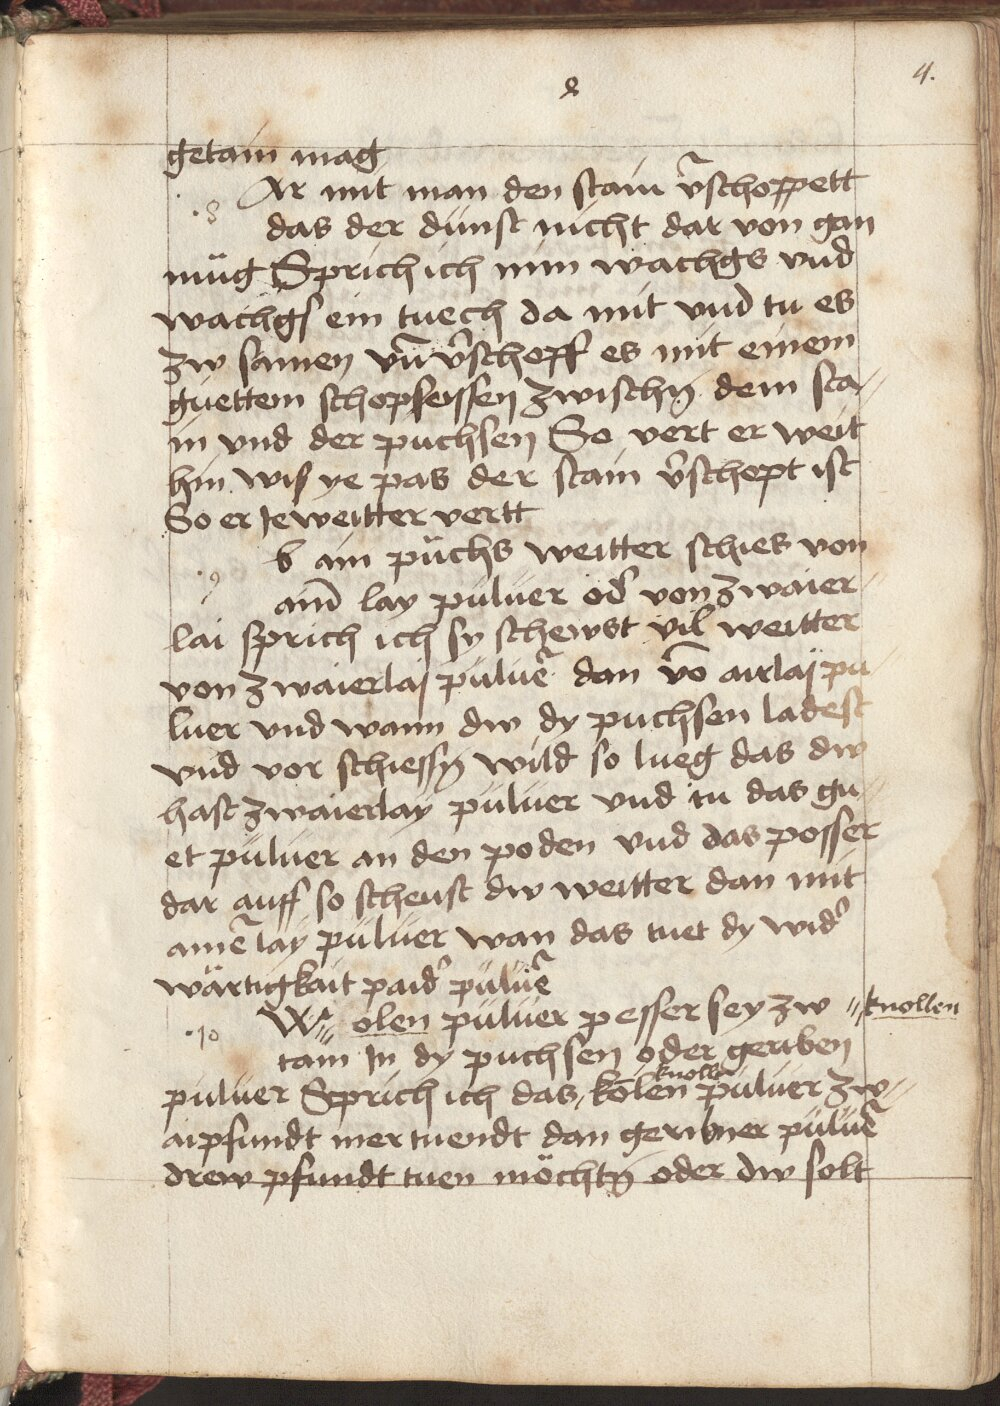 8
4.
getain mag
·8 Ar mit man den stain v̄schoppett
das der dunst nicht dar von gan
müg Sprich ich nim wachgs vnd
wachgs ein tuech da mit vnd tu es
zw samen vn̄ v̄schopff es mit einem
guettem schopfeissen zwischn̄ dem sta⸗
in vnd der puchsen So vert er weit
hin wis ye pas der stain v̄schopt ist
So er Ieweitter vertt
·9 b ain püchs weitter schies von
aīn lay puluer od̄ von zwaier⸗
lai sprich ich sy schewst vil weitter
von zwaierlaj puluē dan vō airlaj pu⸗
luer vnd wann dw dy puchsen ladest
vnd vor schiessn̄ wild so lueg das dw
hast zwaierlay puluer vnd tu das gu⸗
et puluer an den poden vnd das posser
dar auff so scheust dw weitter dan mit
ainē lay puluer wan das tuet dy wid̄
wärtigkait paid̄ puluē
·10 W⸗ olen puluer pesser sey zw ⸗ knollen
tain In dy puchsen oder geriben
knolln
puluer Sprich ich das, kolen puluer zw⸗
aipfundt mer tuendt dan geribner puluē
drew pfundt tuen möchtn̄ oder dw solt